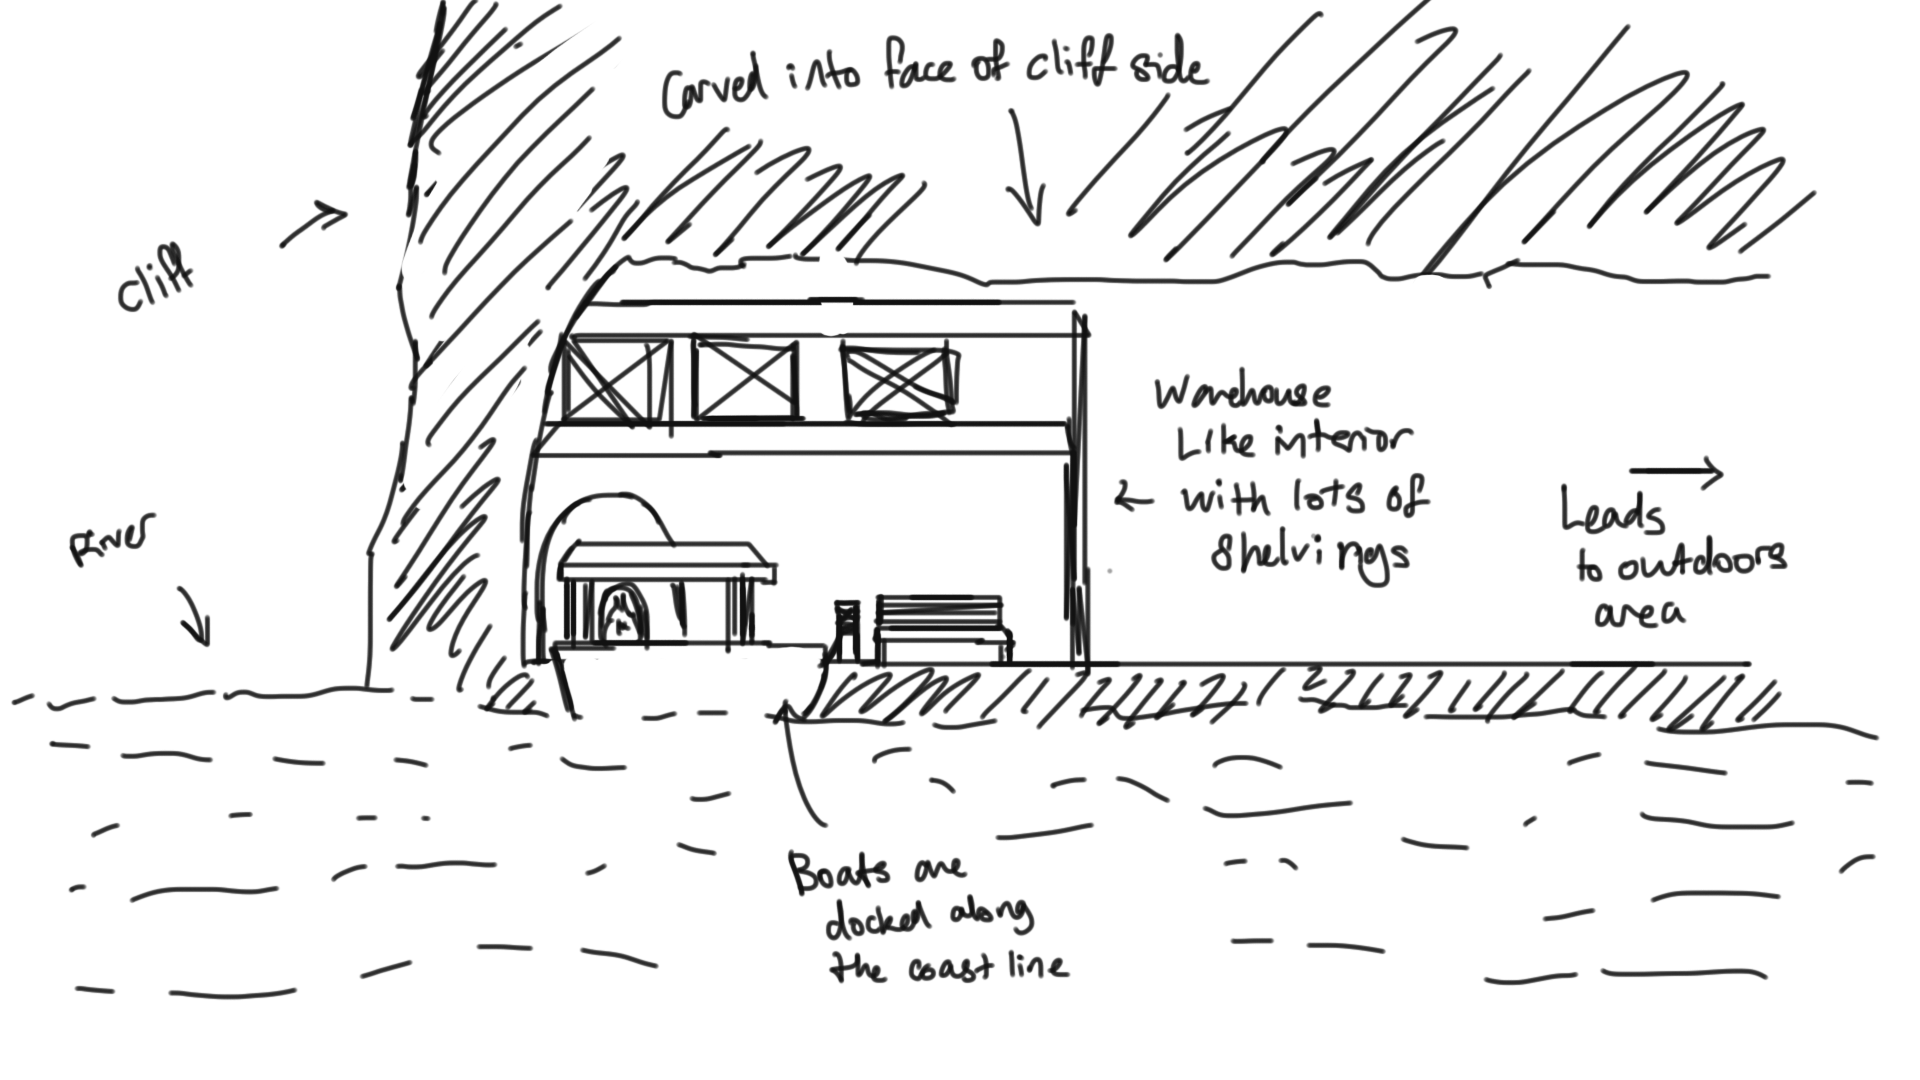 Carved into face of cliff side
Cliff
River
Warehouse
Like interior
with lots of
shelvings
Leads
to outdoors
area
Boats are
docked along
the coast line